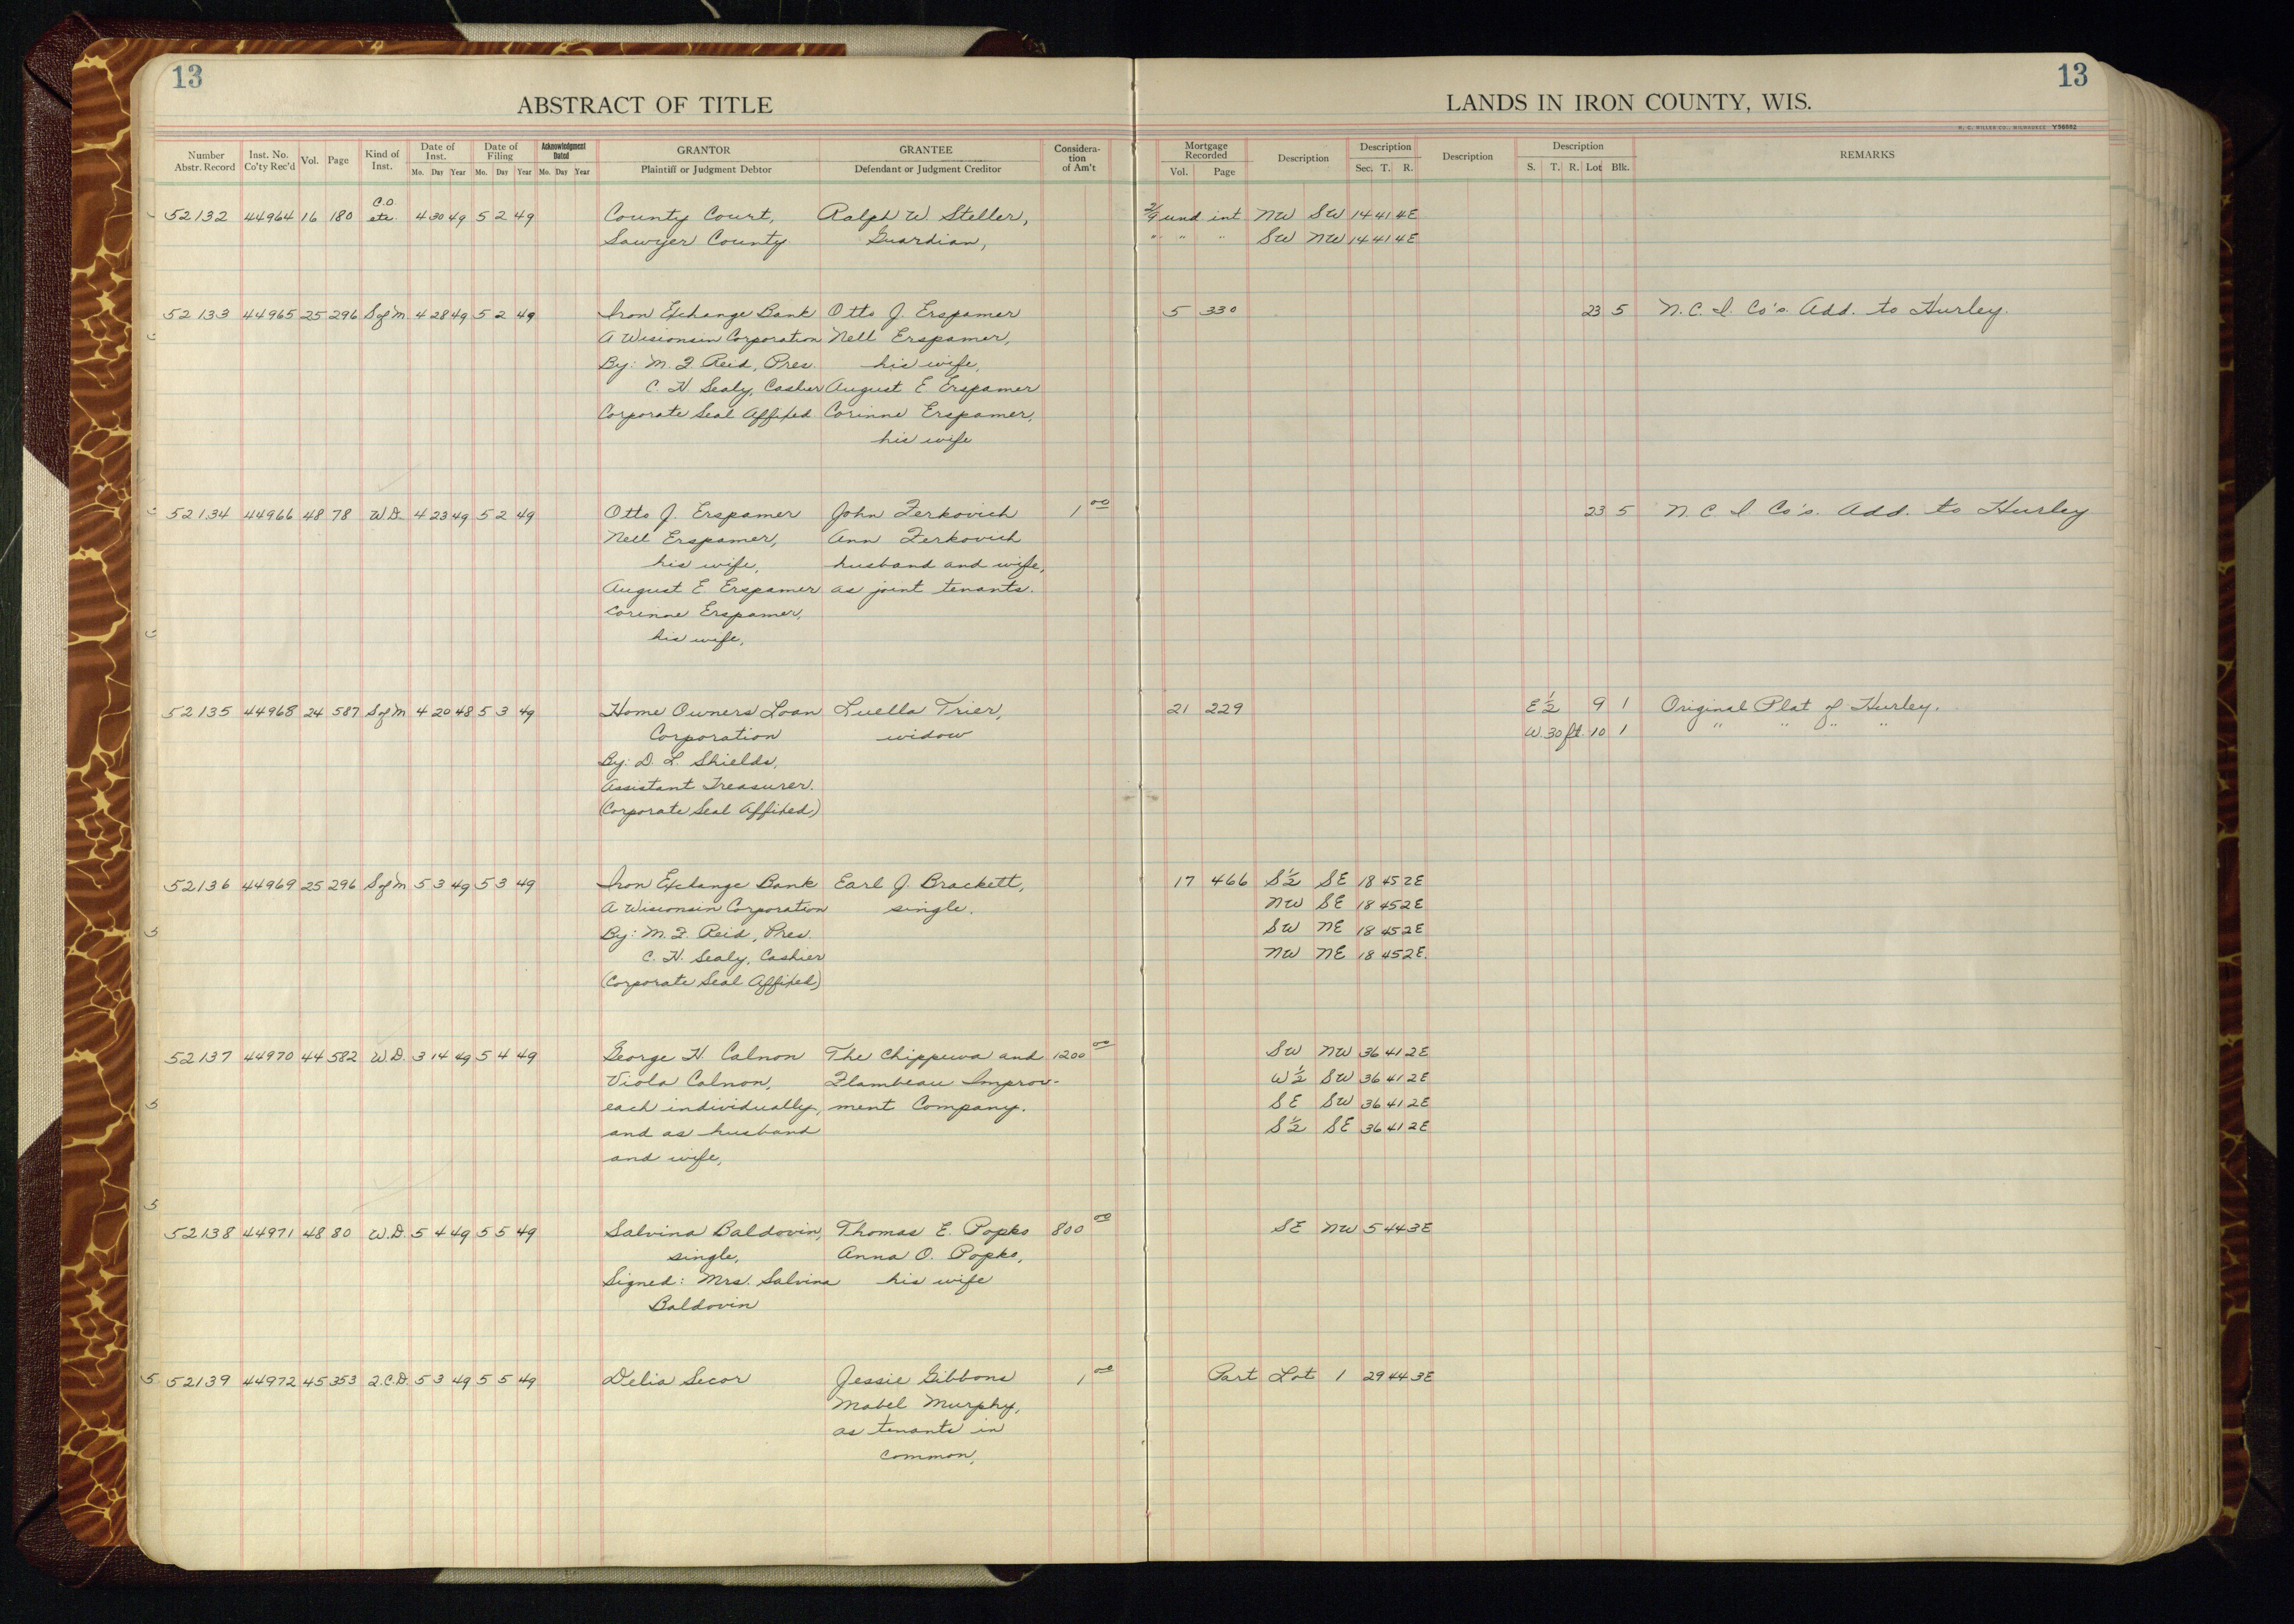 13
13
ABSTRACT OF TITLE
LANDS IN IRON COUNTY, WIS.
H. C. MILLER CO., MILWAUKEE Y56662
Number Abstr. Record
Inst. No. Co'ty Rec'd
Vol.
Page
Kind of Inst.
Date of Inst. Mo. Day Year
Date of Filing Mo. Day Year
Acknowledgment Dated Mo. Day Year
GRANTOR Plaintiff or Judgment Debtor
GRANTEE Defendant or Judgment Creditor
Consideration of Am't
Mortgage Recorded Vol. Page
Description
Description Sec. T. R.
Description
Description S. T. R. Lot Blk.
REMARKS
C.O.
52132 44964 16 180 etc. 4 30 49 5 2 49 County Court, Ralph W. Steller, 2/9 und int NW SW 14 41 4E
Sawyer County Guardian, " " " SW NW 14 41 4E
52133 44965 25 296 S of M 4 28 49 5 2 49 Iron Exchange Bank Otto J. Erspamer 5 330 23 5 N. C. I. Co's. Add. to Hurley.
A Wisconsin Corporation Nell Erspamer,
By: M. F. Reid, Pres. his wife,
C. H. Sealy, Cashier August E Erspamer
Corporate Seal Affixed Corinne Erspamer,
his wife
52134 44966 48 78 W.D. 4 23 49 5 2 49 Otto J. Erspamer John Zerkovich 1 00 23 5 N. C. I. Co's. Add. to Hurley
Nell Erspamer, Ann Zerkovich
his wife, husband and wife,
August E. Erspamer as joint tenants.
Corinne Erspamer,
his wife,
52135 44968 24 587 S of M 4 20 48 5 3 49 Home Owners Loan Luella Trier, 21 229 E½ 9 1 Original Plat of Hurley.
Corporation widow W. 30 ft. 10 1 " " " "
By: D. L. Shields,
Assistant Treasurer.
(Corporate Seal Affixed)
52136 44969 25 296 S of M 5 3 49 5 3 49 Iron Exchange Bank Earl J. Brackett, 17 466 S½ SE 18 45 2E
A Wisconsin Corporation single. NW SE 18 45 2E
By: M. F. Reid, Pres. SW NE 18 45 2E
C. H. Sealy, Cashier NW NE 18 45 2E.
(Corporate Seal Affixed)
52137 44970 44 582 W.D. 3 14 49 5 4 49 George H. Calnon The Chippewa and 1200 00 SW NW 36 41 2E
Viola Calnon, Flambeau Improv- W½ SW 36 41 2E
each individually, ment Company. SE SW 36 41 2E
and as husband S½ SE 36 41 2E
and wife,
52138 44971 48 80 W.D. 5 4 49 5 5 49 Salvina Baldovin, Thomas E. Popko 800 00 SE NW 5 44 3E
single, Anna O. Popko,
Signed: Mrs. Salvina his wife
Baldovin
5 52139 44972 45 353 2.C.D. 5 3 49 5 5 49 Delia Secor Jessie Gibbons 1 00 Part Lot 1 29 44 3E
Mabel Murphy,
as tenants in
common,